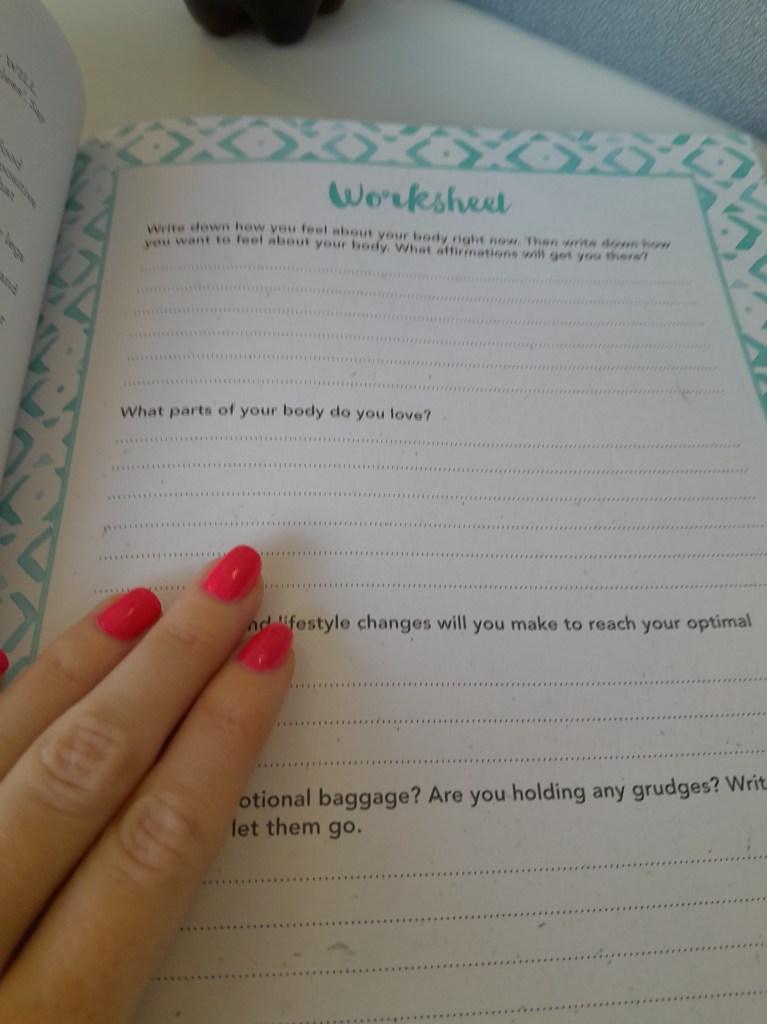 WILL
food
positive
legs
and
Worksheet
Write down how you feel about your body right now. Then write down how
you want to feel about your body. What affirmations will get you there?
What parts of your body do you love?
lifestyle changes will you make to reach your optimal
otional baggage? Are you holding any grudges? Writ
let them go.